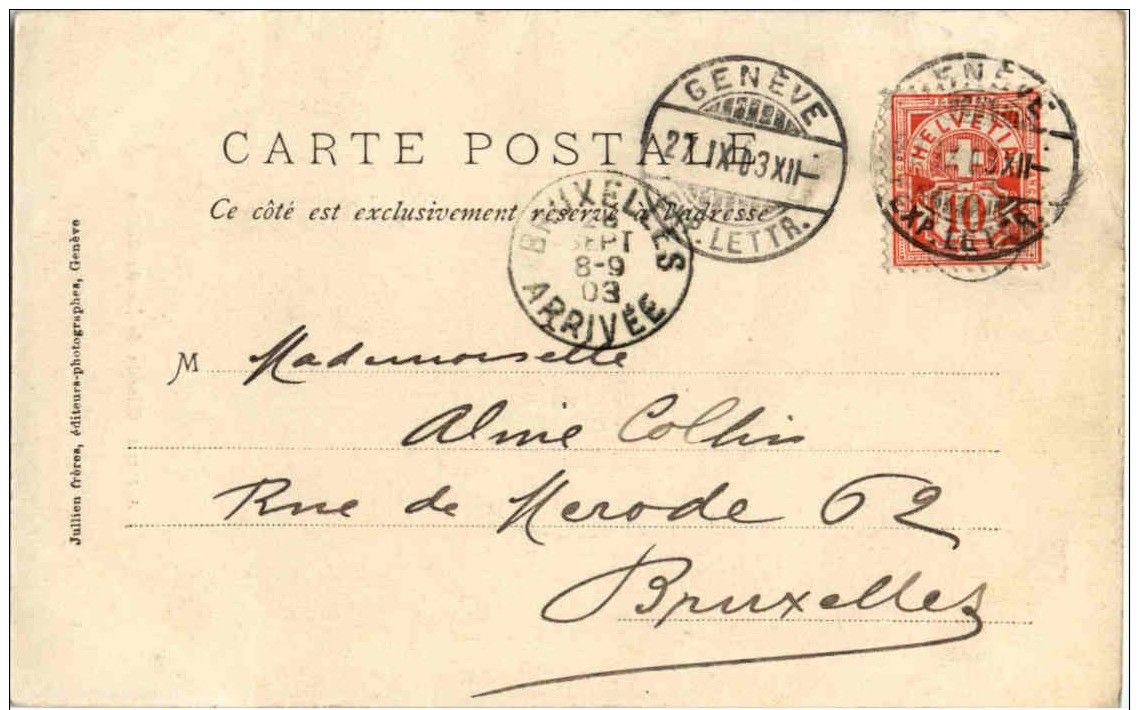 CARTE POSTALE
Ce côté est exclusivement réservé à l'adresse
GENÈVE
27.IX.03 XII
LETTR.
GENÈVE
03 XII
EXP. LETTR.
HELVETIA
10
BRUXELLES
SEPT
8-9
03
ARRIVÉE
M Mademoiselle
Aline Collin
Rue de Merode 62
Bruxelles
Jullien frères, éditeurs-photographes, Genève